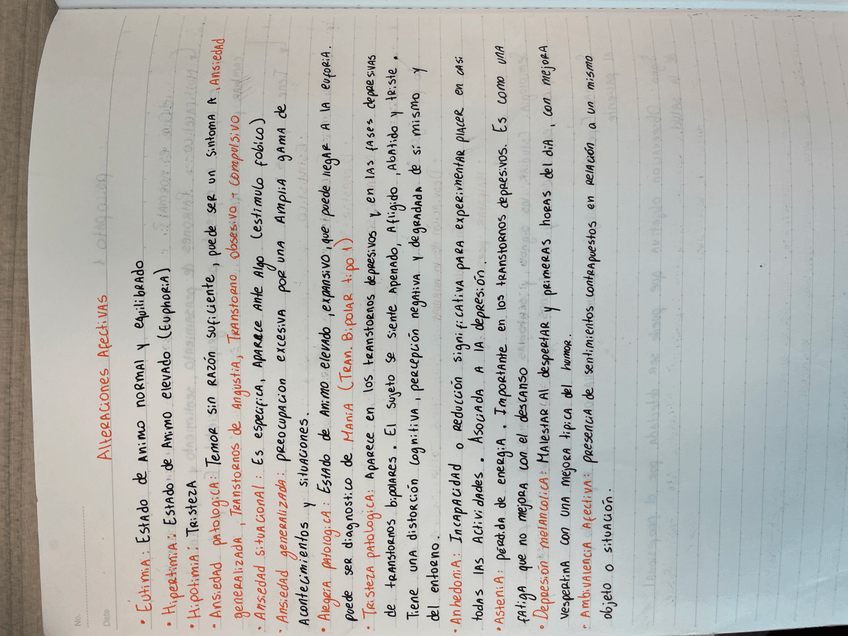 No.
Date
Alteraciones Afectivas
• Eutimia: Estado de Animo normal y equilibrado
• Hipertimia: Estado de Animo elevado (Euphoria)
• Hipotimia: Tristeza
• Ansiedad patologica: Temor sin razón suficiente, puede ser un sintoma A, Ansiedad
generalizada, Transtornos de Angustia, Transtorno obsesivo - compulsivo
• Ansiedad situacional: Es especifica, Aparece Ante Algo (estimulo fobico)
• Ansiedad generalizada: preocupacion excesiva por una Amplia gama de
Acontecimientos y situaciones.
• Alegria patologica: Estado de Animo elevado, expansivo, que puede llegar A la euforia.
puede ser diagnostico de Mania (Tran. Bipolar tipo 1)
• Tristeza patologica: Aparece en los transtornos depresivos y en las fases depresivas
de transtornos bipolares. El sujeto se siente Apenado, Afligido, Abatido y triste.
Tiene una distorción cognitiva, percepción negativa y degradada de si mismo y
del entorno.
• Anhedonia: Incapacidad o Reducción significativa para experimentar placer en casi
todas las Actividades. Asociada A la depresión.
• Astenia: pérdida de energia. Importante en los transtornos depresivos. Es como una
fatiga que no mejora con el descanso
• Depresión melancolica: Malestar Al despertar y primeras horas del dia, con mejora
Vespertina con una mejora tipica del humor.
• Ambivalencia Afectiva: presencia de sentimientos contrapuestos en relación a un mismo
objeto o situación.